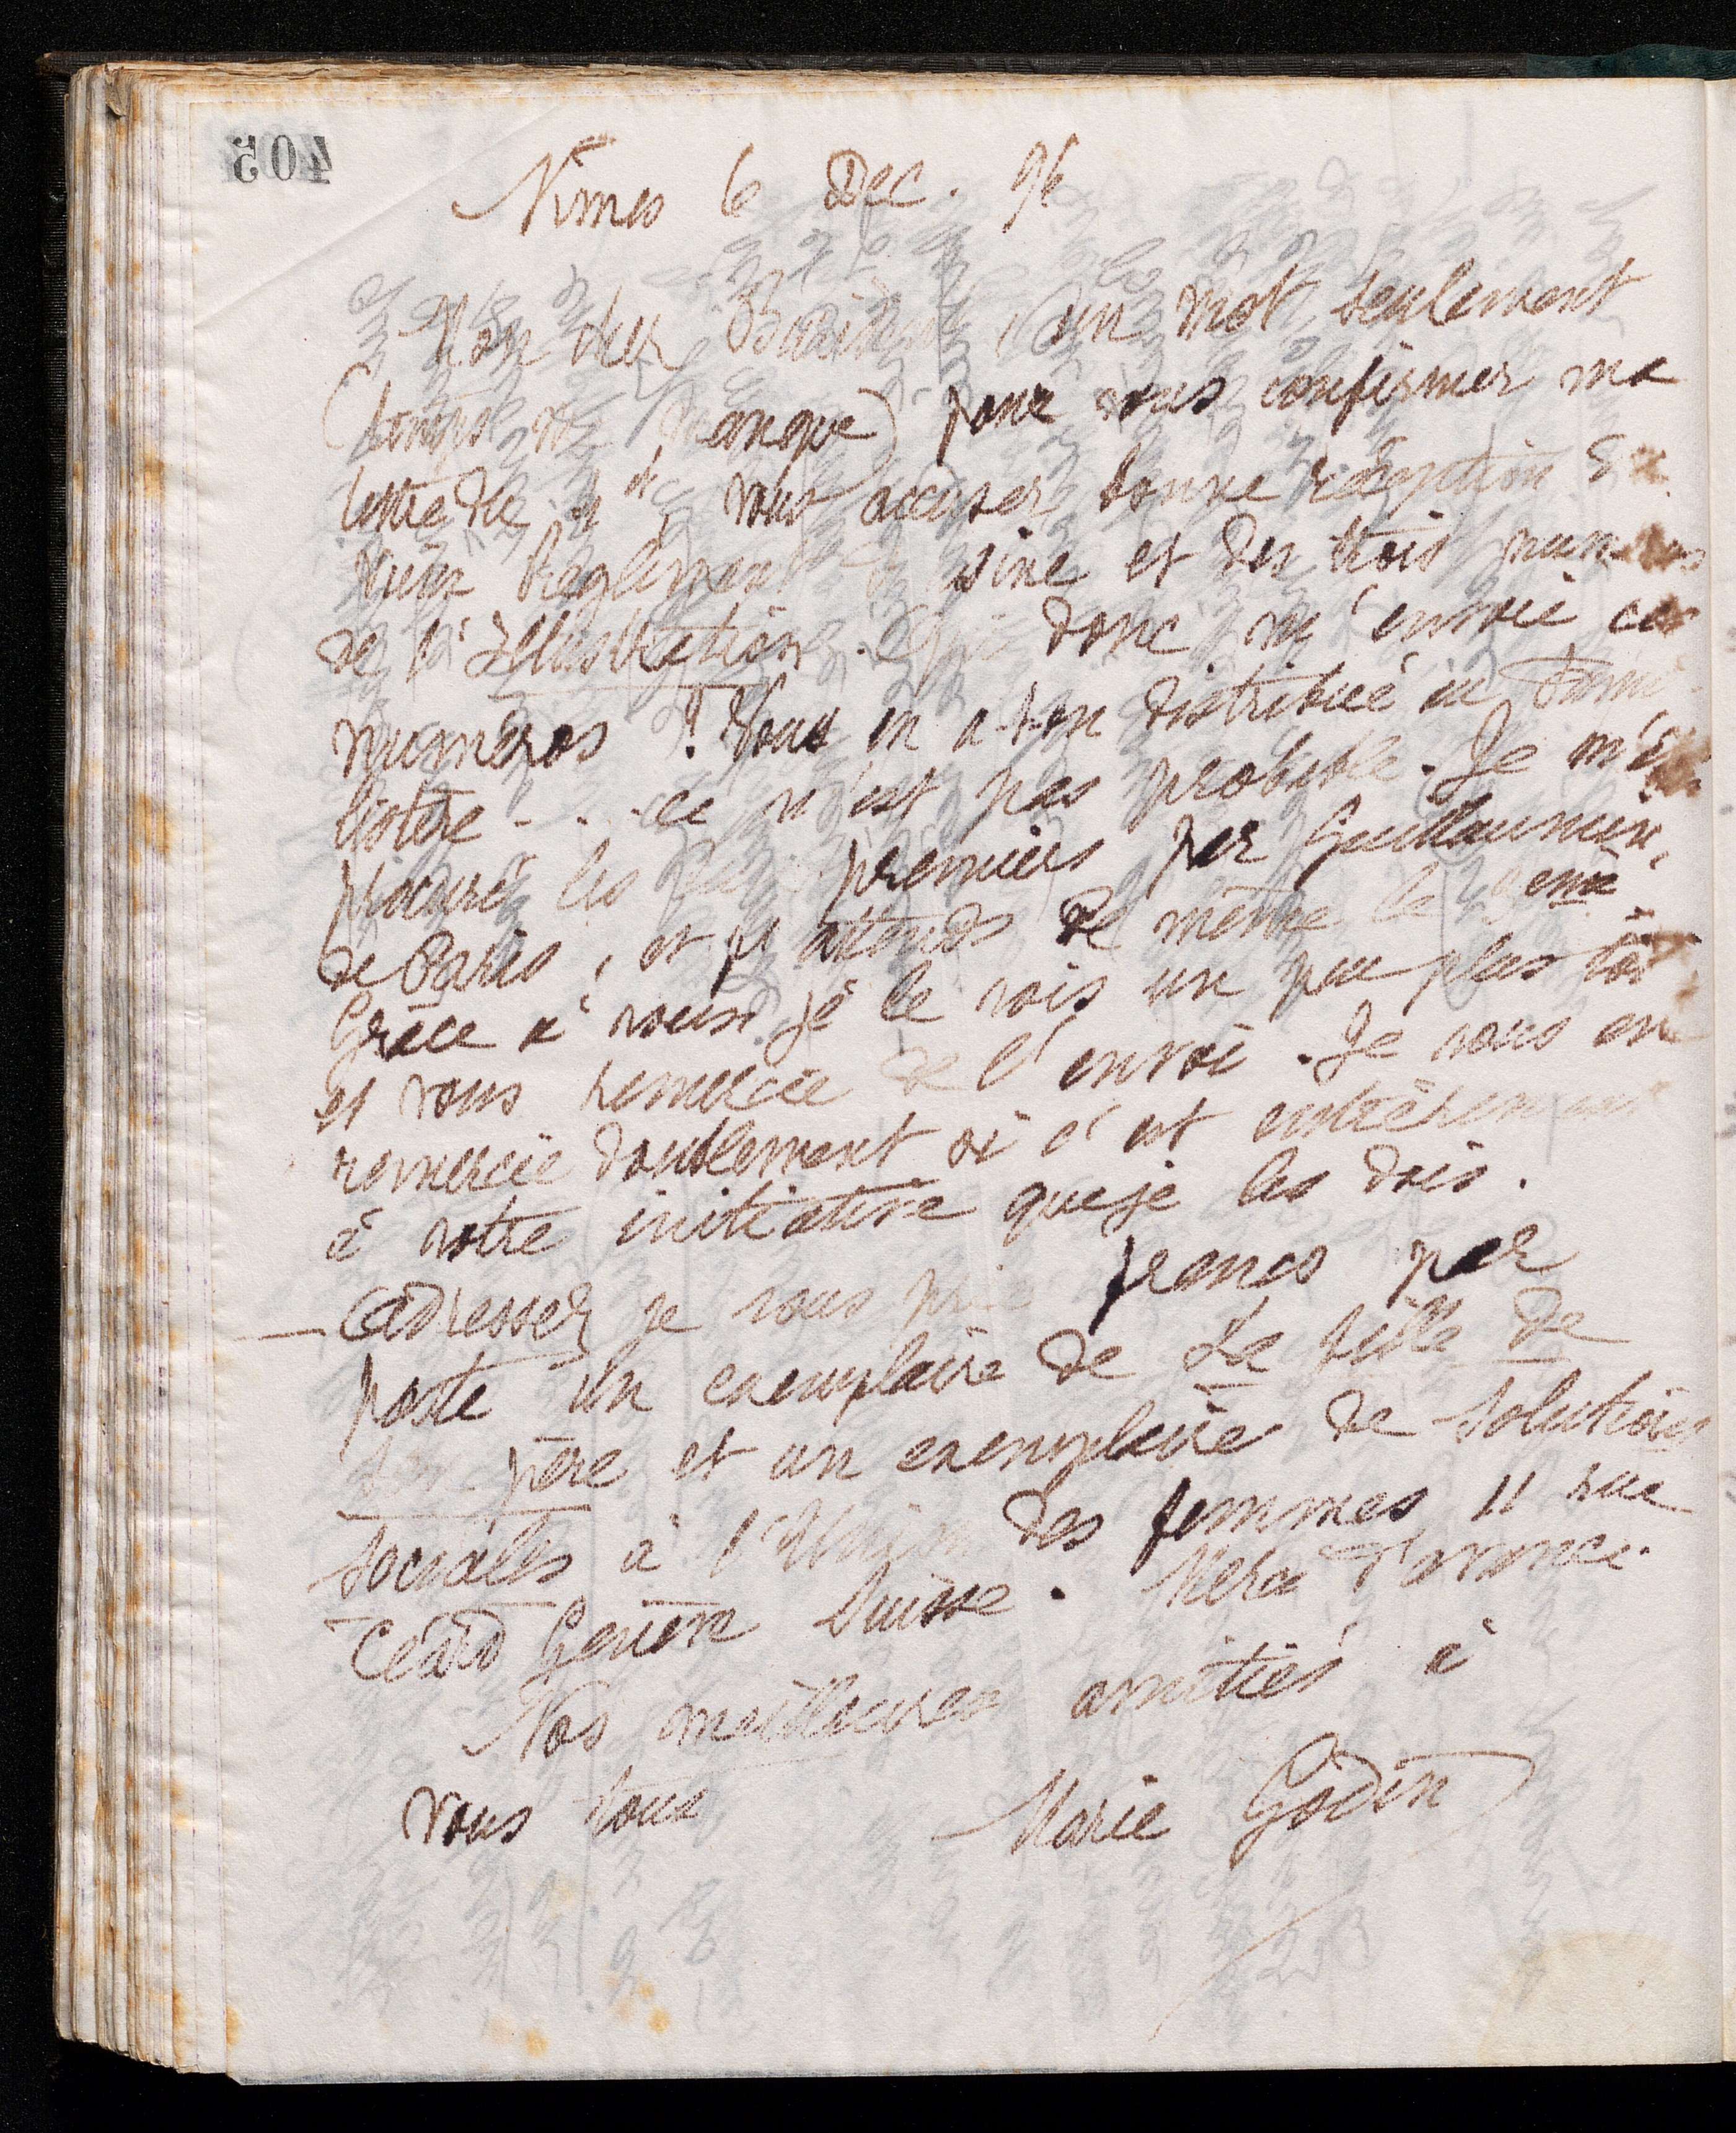 405
Nîmes 6 Dec. 96
Mon cher un mot seulement
(temps me manque) pour vous confirmer ma
lettre du vous accuser bonne réception du
vieux Règlement d'usine et des trois numéros
de l'Illustration. Qui donc m'envoie ces
numéros ? Vous en a-t-on distribué au Fami-
listère - . . . ce n'est pas probable. Je m'étais
procuré les premiers par Guillaumin,
de Paris, et j'attends de même le 3eme
Grâce à vous je le vois un peu plus tôt
et vous remercie de l'envoi. Je vous en
remercie doublement si c'est entièrement
à votre initiative que je les dois.
— Adressez je vous prie franco par
poste un exemplaire de La fille de
son père et un exemplaire de Solutions
sociales à l'Union des femmes 11 rue
Céard Genève Suisse. Merci d'avance.
Nos meilleures amitiés à
vous tous
Marie Godin